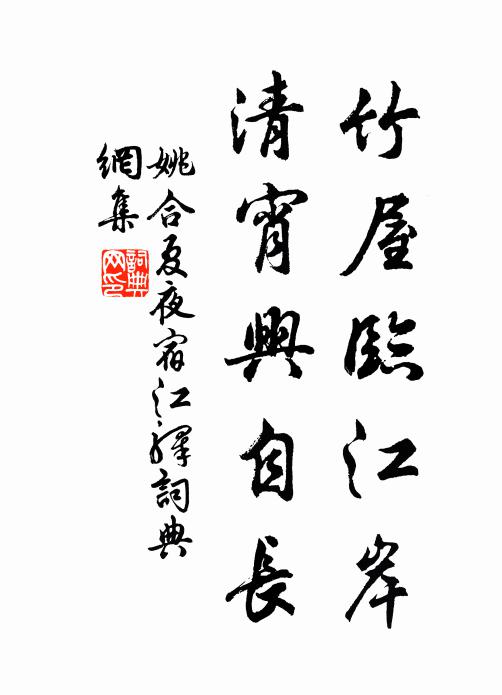 竹屋臨江岸
清宵興自長
姚合夏夜宿江驛詞典
網集
詞典
网印